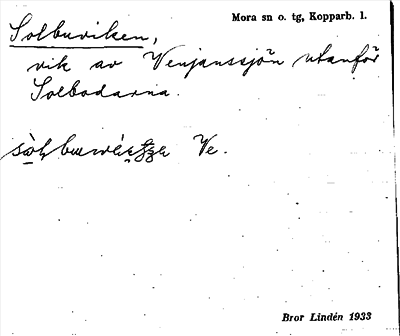 Solbuviken,
Mora sn o. tg, Kopparb. l.
vik av Venjanssjön utanför
Solbodarna.
Ve.
Bror Lindén 1933